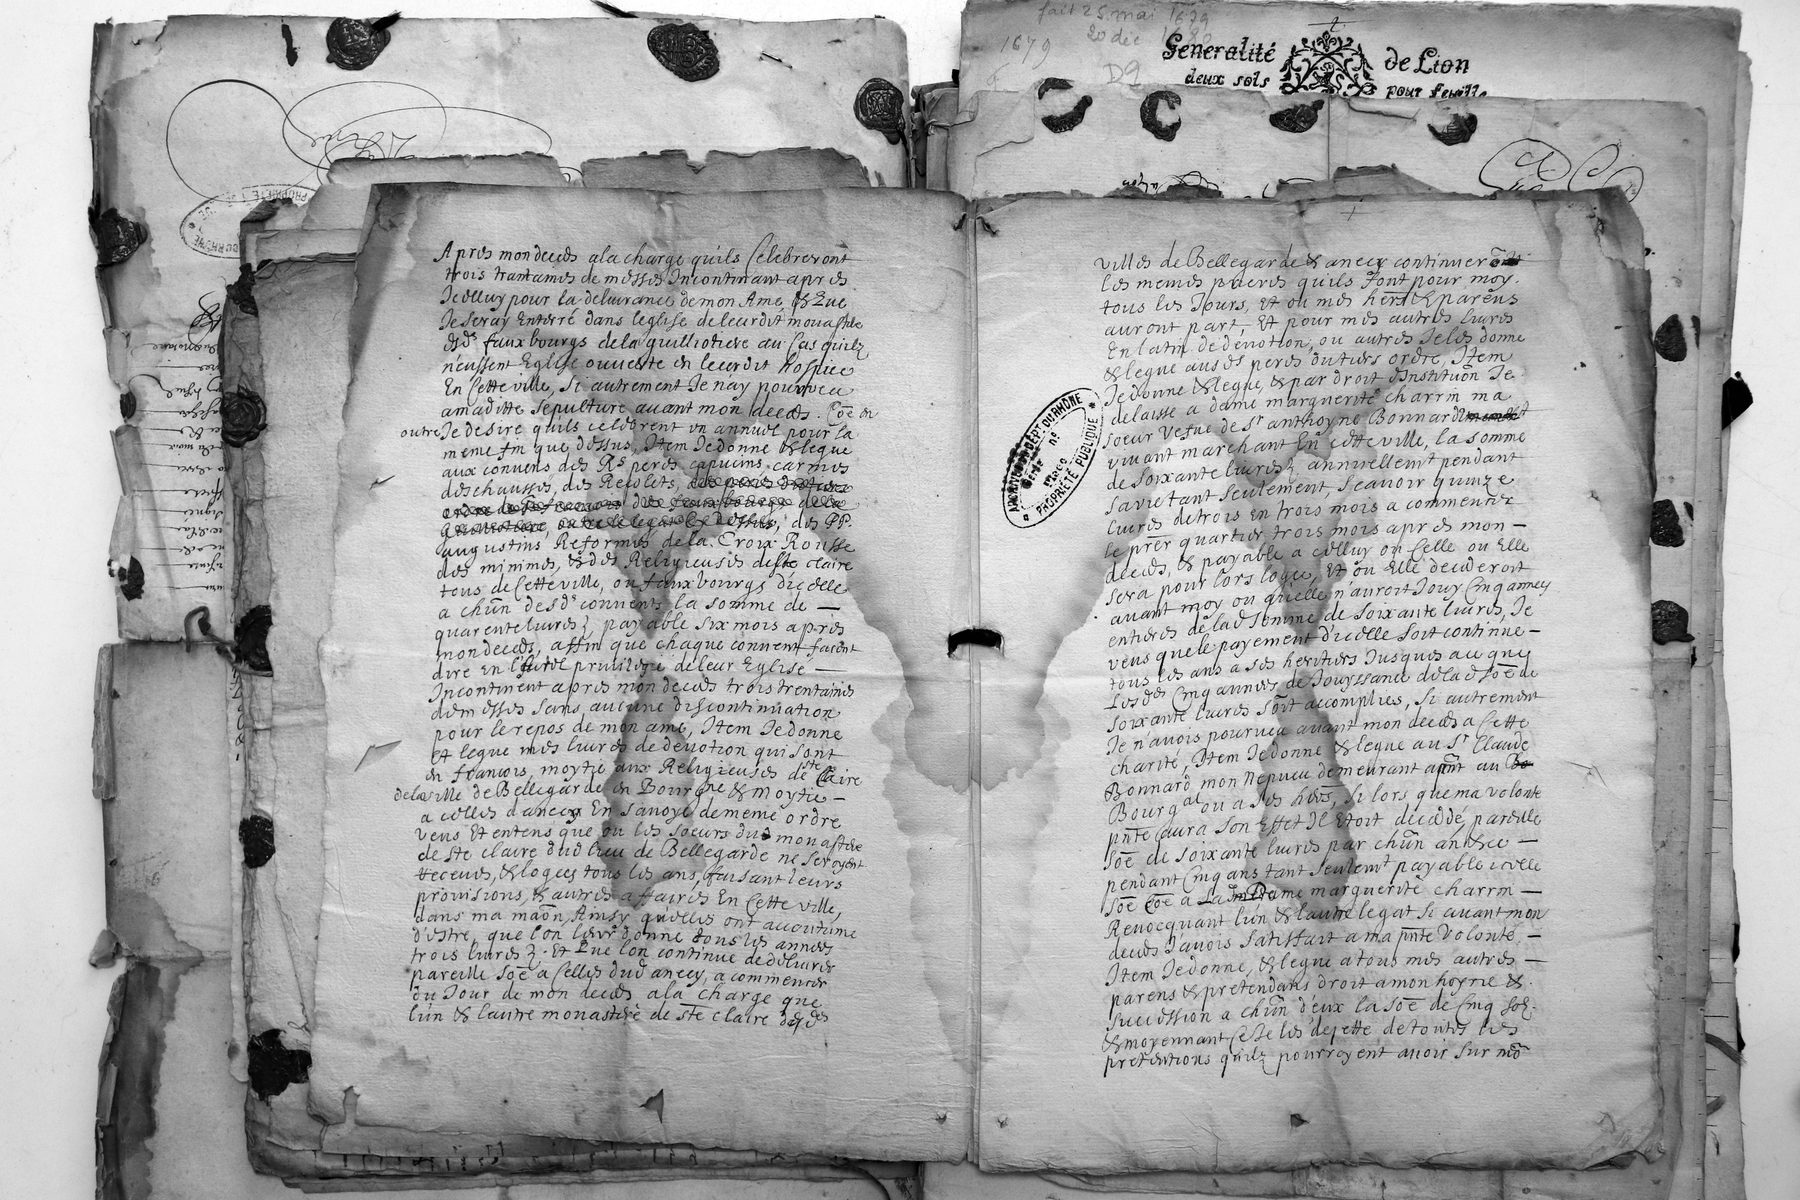 fait 25 mai 1679
20 dec 1680
1679
D9
Generalité de Lion
deux sols pour feuille
Apres mon decès a la charge quils Celebreront
trois trantaines de messes Incontinant apres
Icelluy pour la deliurance de mon Ame, & Que
Je seray Enterré dans leglise de leurdit monastere
dud. faux bourgs de la guilliotiere au Cas quilz
n'eussent Eglise ouuerte en leurdit hospice
En Cette ville, Si autrement Je nay pourueu
amaditte sepulture auant mon decès. Coe en
outre Je desire quils celebrent un annuel pour la
meme fin que dessus, Item Je donne & legue
aux conuens des Rs peres capucins, carmes
deschaussés, des Recolets,
outre le legat Cy dessus, des PP.
augustins Reformés de la Croix Rousse
des minimes, & des Religieuses de ste claire
tous de Cette ville, ou faux bourgs d'icelle
a chun desds conuents la somme de —
quarente liures, payable six mois apres
mon decès, affin que chaque conuent fasent
dire en l'autel priuilegié de leur Eglise —
Incontinent apres mon decès trois trentaines
de messes sans aucune discontinuation
pour le repos de mon ame, Item Je donne
et legue mes liures de deuotion qui sont
en francois, moytie aux Religieuses de ste Claire
de la ville de Bellegarde en Bourgne & moytie —
a celles d'anecy En Sauoye de meme ordre
veus Et entens que ou les soeurs dud monastere
de ste claire dud lieu de Bellegarde ne seroyent
receues, & logées tous les ans, faisant leurs
prouisions, & autres affaires En Cette ville,
dans ma maon, Ainsy qu'elles ont accoutume
d'estre, que l'on leur donne tous les années
trois liures. Et Que l'on continue de deliurer
pareille Soe a Celles dud anecy, a commencer
du Jour de mon decès a la charge que
l'un & l'autre monastere de ste claire desds
villes de Bellegarde & anecy continueront
les memes prieres quils font pour moy
tous les Jours, Et ou mes hers & parens
auront part, Et pour mes autres liures
En latin de deuotion, ou autres Je les donne
& legue ausds peres du tiers ordre, Item
Je donne & legue, & par droit d'Instituon Je
delaisse a dame marguerite charrin ma
soeur vefue de sr anthoyne Bonnard
viuant marchant En cette ville, la somme
de soixante liures, annuellemt pendant
sa vie tant seulement, scauoir quinze
liures de trois en trois mois a commencer
le prer quartier trois mois apres mon —
decès, & payable a celluy ou Celle ou Elle
sera pour lors logée, Et ou Elle decederoit
auant moy ou quelle n'auroit Jouy Cinq années
entieres de lad somme de soixante liures, Je
veus que le payement d'icelle soit continué —
tous les ans a ses heritiers Jusques a ce que
lesdes Cinq années de Jouyssance de lad soe de
soixante liures soit accomplies, Si autrement
Je n'auois pourueu auant mon decès a Cette
charité, Item Je donne & legue au Sr Claude
Bonnard mon Nepueu demeurant apnt au
Bourgal ou a ses hers, Si lors que ma volonte
pnte aura son Effet Il Etoit decedé, pareille
soe de soixante liures par chun an &ce —
pendant Cinq ans tant seulemt payable icelle
soe Coe a Lad Dame marguerite charrin —
Reuocquant l'un & l'autre legat Si auant mon
decès J'auois satisfait a ma pnte volonté. —
Item Je donne, & legue a tous mes autres —
parens & pretendans droit a mon hoyrie &
succession a chun d'eux la soe de Cinq sols
& moyennant Ce Je les dejette de toutes les
pretentions quils pourroyent auoir sur mon
ARCHIVES DU DÉPT DU RHÔNE
PROPRIÉTÉ PUBLIQUE